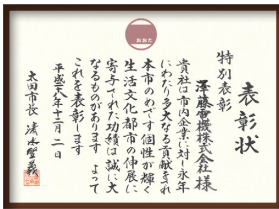 おおた
表彰状
特別表彰
澤藤電機株式会社様
貴社は市内企業に対し永年
にわたり多大なる貢献をされ
本市のめざす個性が輝く
生活文化都市の伸展に
寄与された功績は誠に大
なるものがあります よって
これを表彰します
平成二十八年十二月二日
太田市長 清水聖義